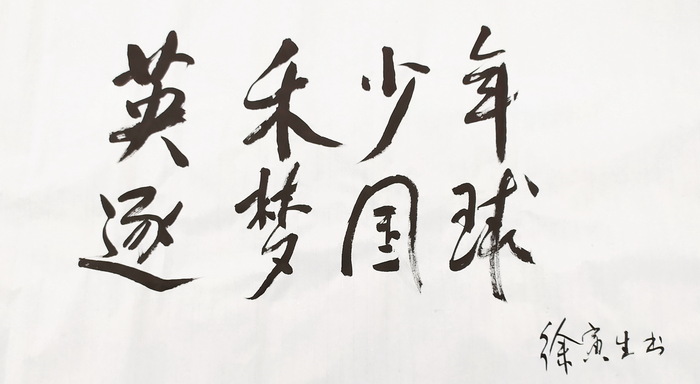 英禾少年
逐梦国球
徐寅生书